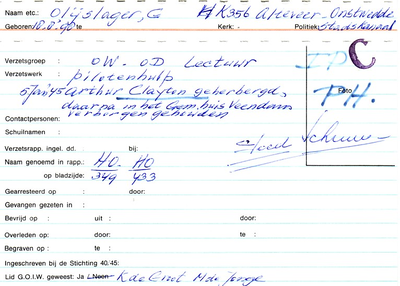 Naam etc.: Olijslager, G # K356 Alteveer-Onstwedde
Geboren 18.8.98 Kerk: - Politiek: Stadskanaal
C
Verzetsgroep : OW. OD Lectuur
Verzetswerk pilotenhulp
5 jan '45 Arthur Clayton geherbergd,
daarna in het Gem.huis Veendam
verborgen gehouden
Foto
T.H.
Contactpersonen:
Schuilnaam :
Verzetsrapp. ingel. dd. : bij:
Naam genoemd in rapp.: HO. HO
op bladzijde: 349 433
Gearresteerd op : door:
Gevangen gezeten in :
Bevrijd op : uit : door:
Overleden op: : te : door:
Begraven op : te :
Ingeschreven bij de Stichting 40/45:
Lid G.O.I.W. geweest: Ja / Neen K de Groot M de Jonge